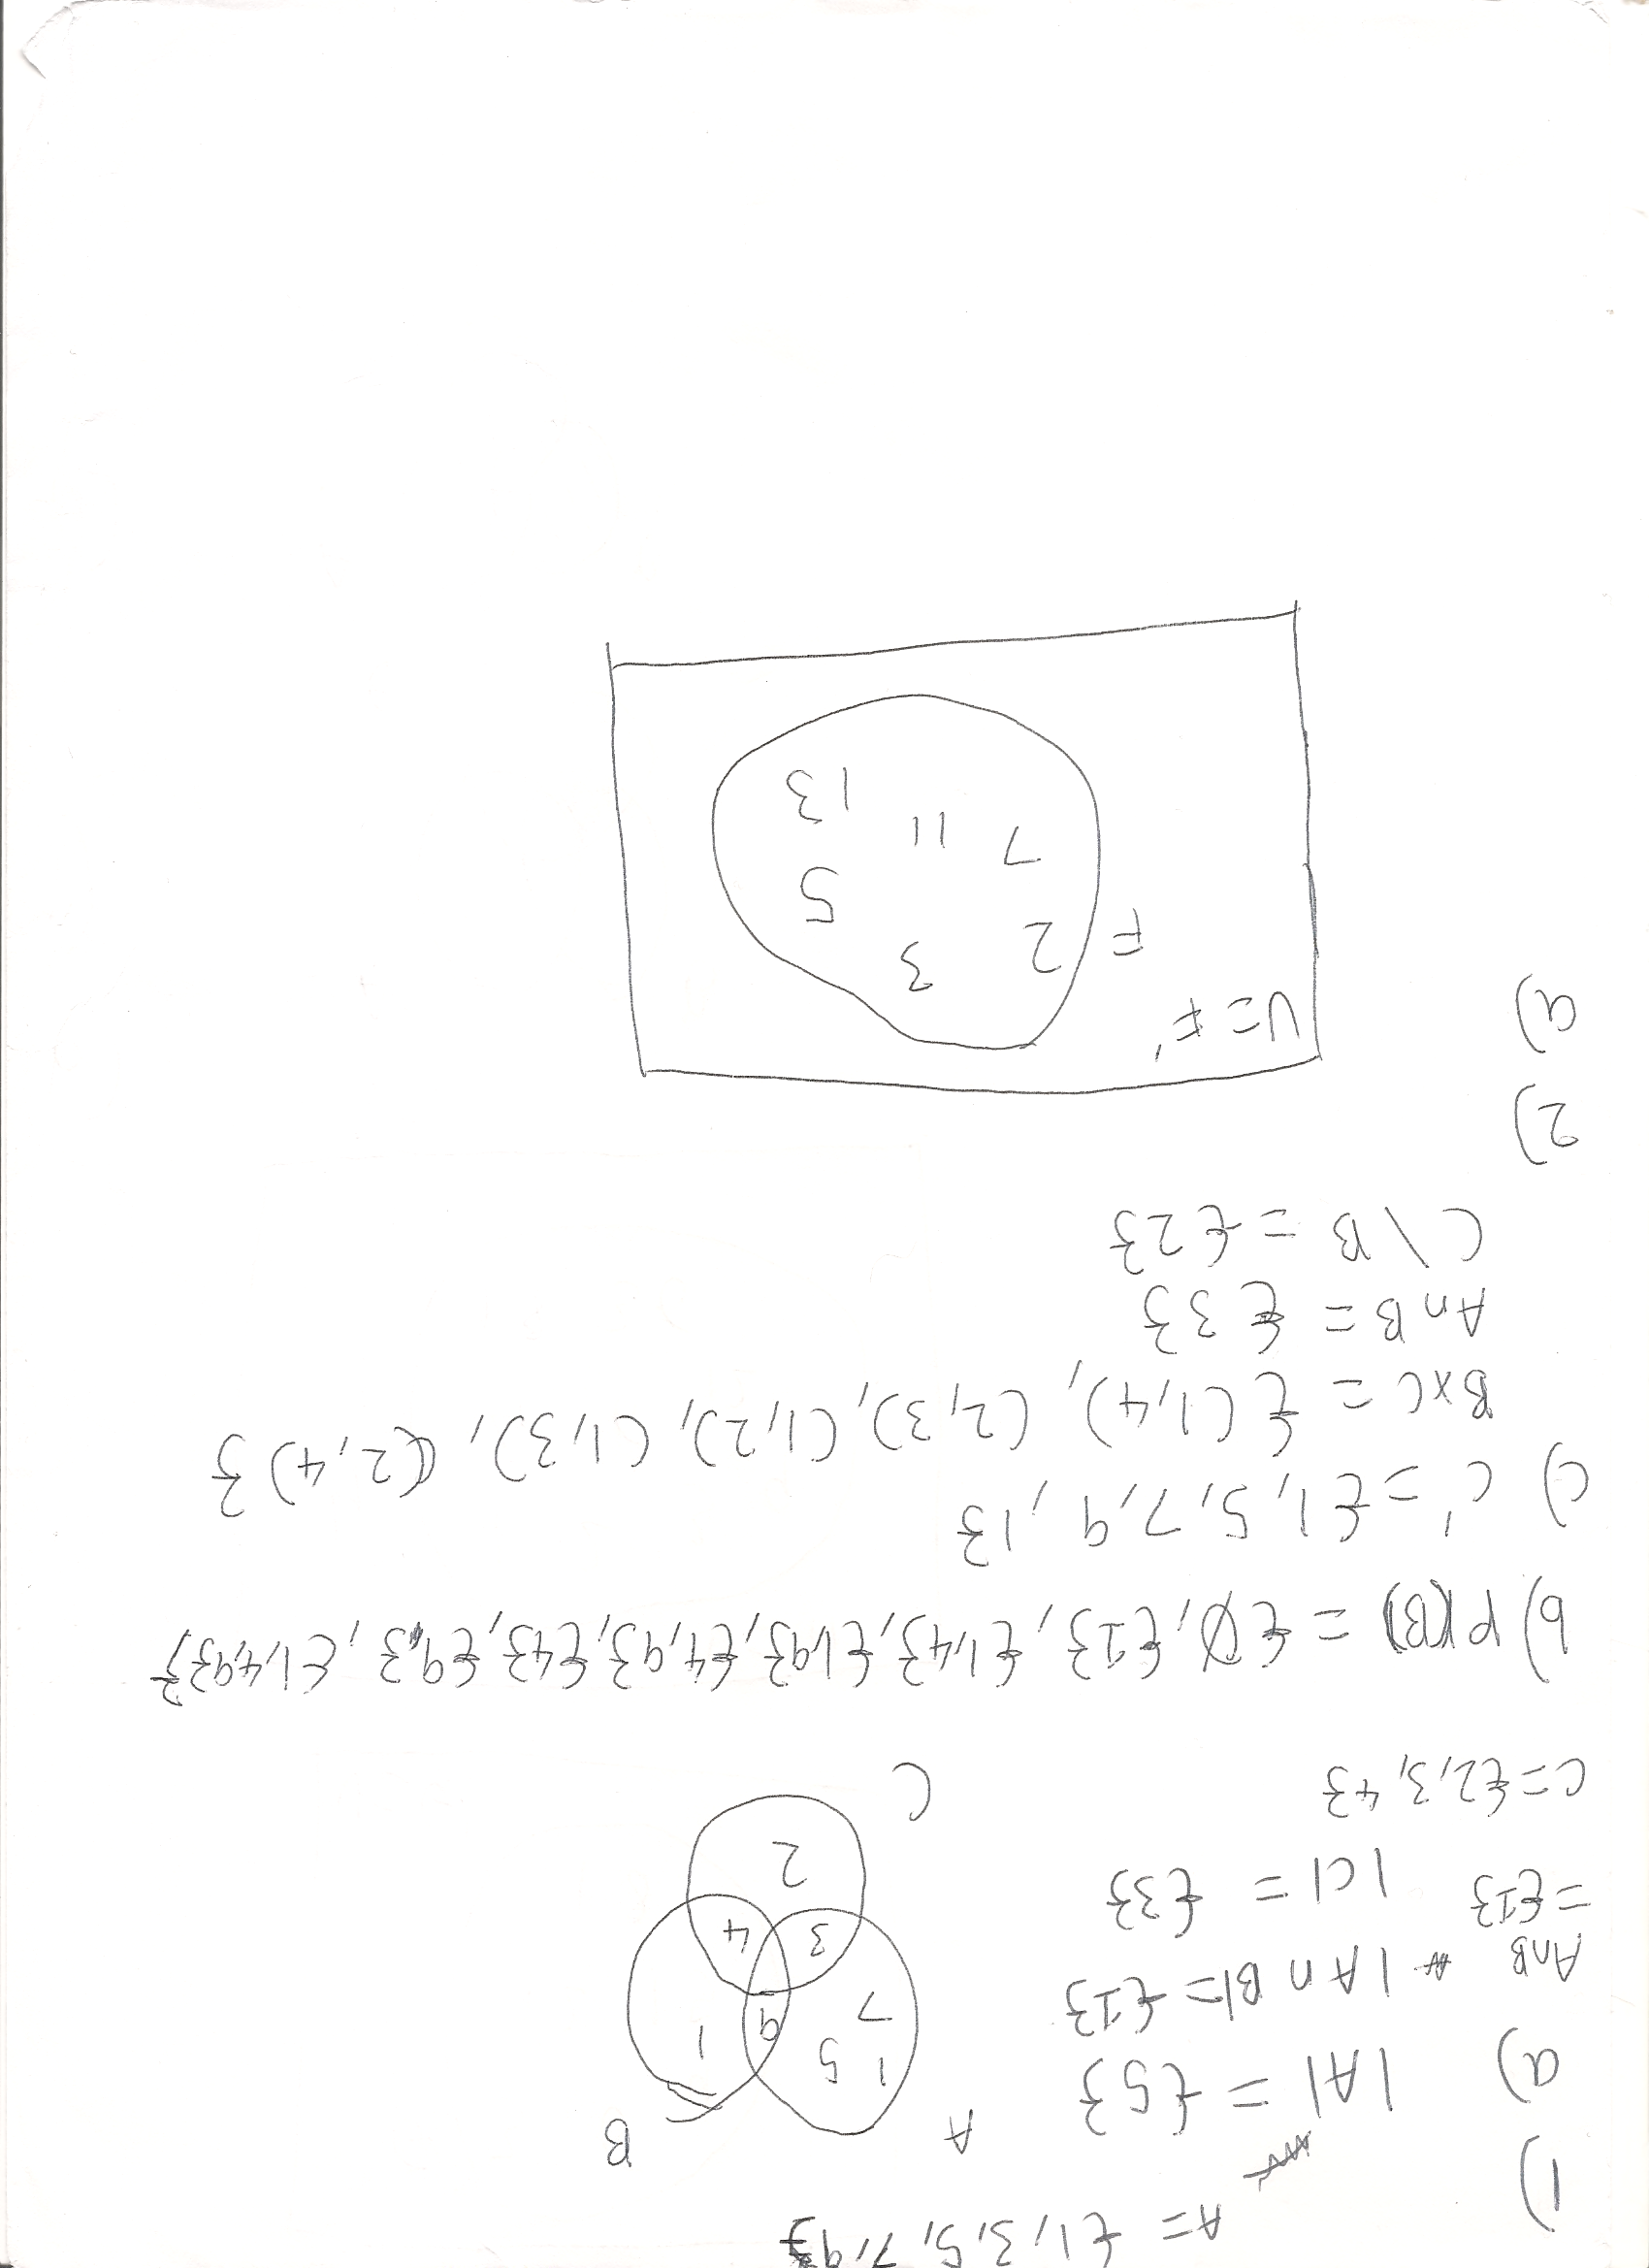 A = {1, 3, 5, 7, 9}
1)
a) |A| = {5}
A∩B |A∩B| = {1}
= {1} |C| = {3}
C = {2, 3, 4}
A B
1 5 9 1
7
3 4
2
C
b) P(B) = {∅, {1}, {1,4}, {1,9}, {4,9}, {4}, {9}, {1,4,9}}
c) C' = {1, 5, 7, 9, 13
B×C = {(1,4), (2,3), (1,2), (1,3), (2,4)}
A∩B = {3}
C\B = {2}
2)
a) U = F'
F 2 3
5
7 11
13